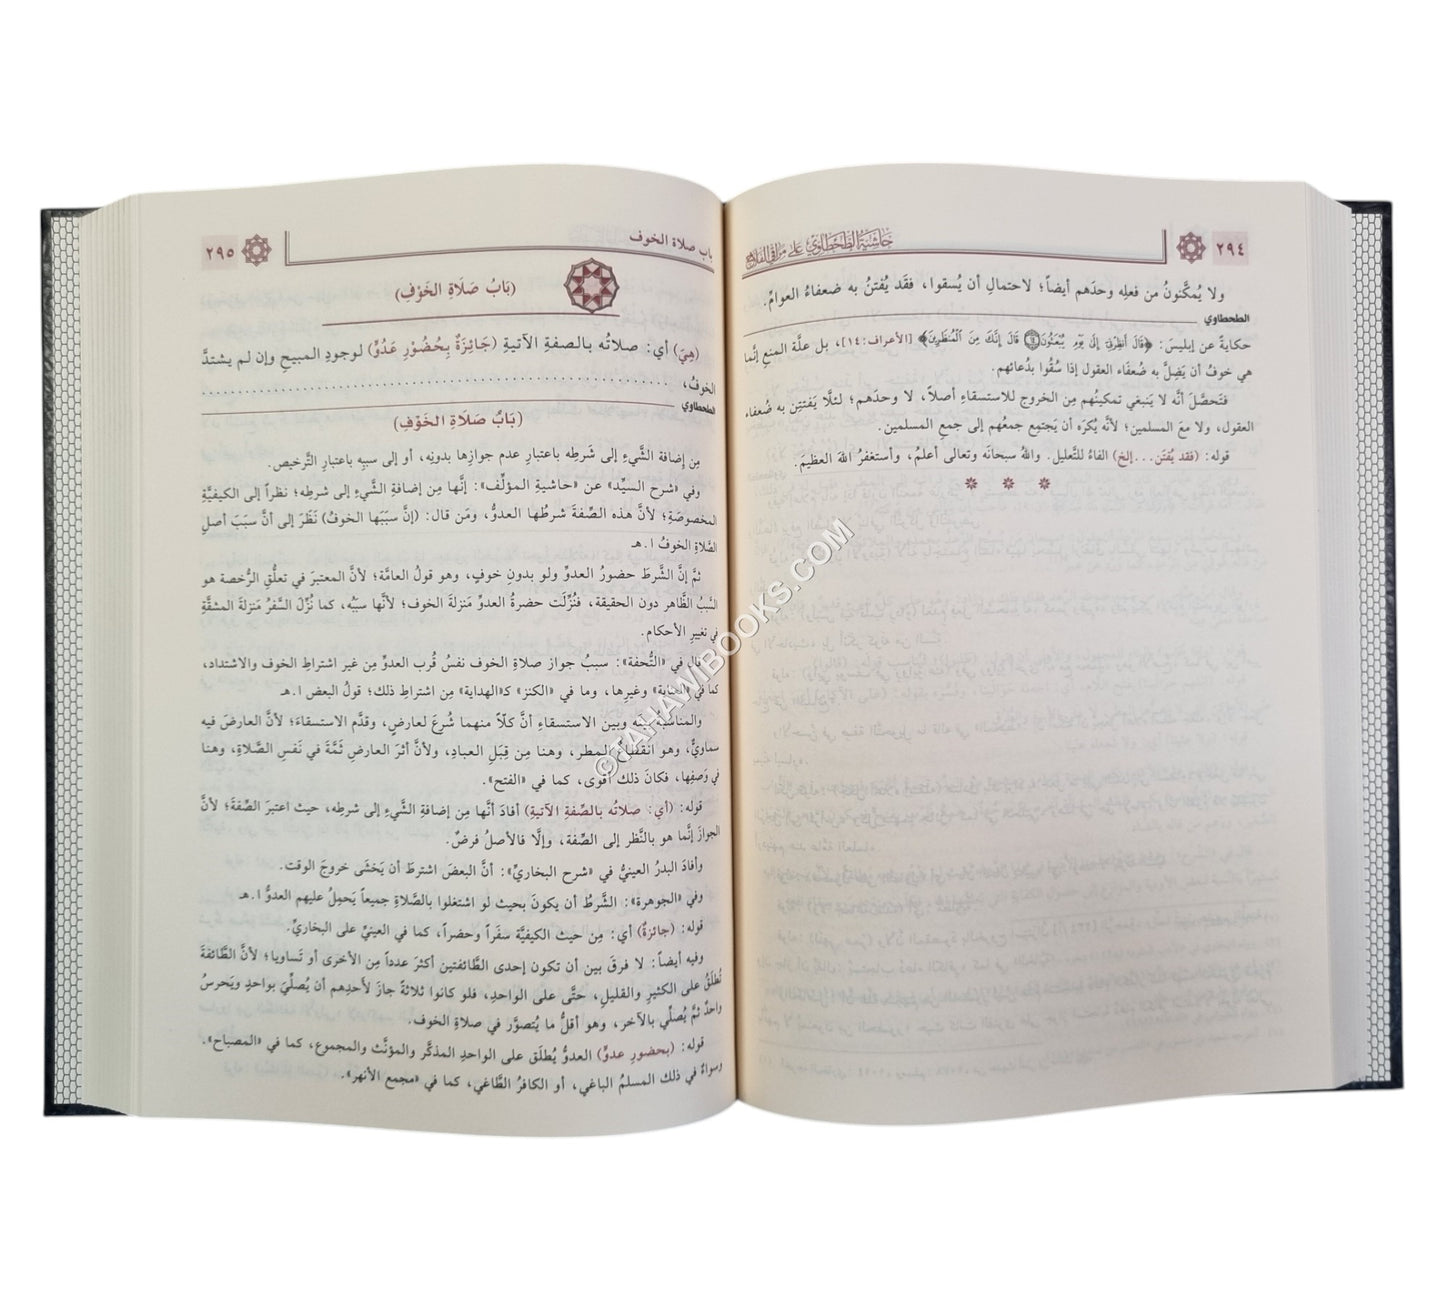 ٢٩٤
حَاشية الطحطاوي على مراقي الفلاح
ولا يُمكَّنونُ من فعلِه وحدَهم أيضاً؛ لاحتمالِ أن يُسقوا، فقَد يُفتنُ به ضعفاءُ العوامِّ.
الطحطاوي
حكايةً عن إبليسَ: ﴿قَالَ أَنظِرْنِي إِلَىٰ يَوْمِ يُبْعَثُونَ ۝ قَالَ إِنَّكَ مِنَ الْمُنظَرِينَ﴾ [الأعراف: ١٤]، بل علَّة المنعِ إنَّما
هي خوفُ أن يَضِلَّ به ضُعفَاء العقول إذا سُقُوا بدُعائهم.
فتَحصَّلَ أنَّه لا يَنبغي تمكينُهم مِن الخروج للاستسقاءِ أصلاً، لا وحدَهم؛ لئلَّا يَفتتِن به ضُعفاء
العقول، ولا معَ المسلمين؛ لأنَّه يُكرَه أن يَجتمِع جمعُهم إلى جمعِ المسلمين.
قوله: (فقد يُفتَن... إلخ) الفاءُ للتَّعليل. واللهُ سبحانَه وتعالى أعلمُ، وأستغفرُ اللهَ العظيمَ.
باب صلاة الخوف
٢٩٥
(بَابُ صَلَاةِ الخَوْفِ)
(هِيَ) أي: صلاتُه بالصفةِ الآتيةِ (جَائِزَةٌ بِحُضُوْرِ عَدُوٍّ) لوجودِ المبيحِ وإن لم يشتدَّ
الخوفُ، ....................................................
الطحطاوي
(بَابُ صَلَاةِ الخَوْفِ)
مِن إضافة الشَّيءِ إلى شَرطِه باعتبارِ عدم جوازِها بدونِه، أو إلى سببِه باعتبارِ التَّرخيص.
وفي «شرح السيِّد» عن «حاشيةِ المؤلِّف»: إنَّها مِن إضافةِ الشَّيءِ إلى شرطِه؛ نظراً إلى الكيفيَّةِ
المخصوصَةِ؛ لأنَّ هذه الصِّفةَ شرطُها العدوُّ، ومَن قال: (إنَّ سبَبَها الخوفُ) نَظَرَ إلى أنَّ سبَبَ أصلِ
الصَّلاةِ الخوفُ ا.هـ
ثمَّ إنَّ الشَّرطَ حضورُ العدوِّ ولو بدونِ خوفٍ، وهو قولُ العامَّة؛ لأنَّ المعتبرَ في تعلُّقِ الرُّخصة هو
السَّببُ الظَّاهر دون الحقيقة، فنُزِّلَت حضرةُ العدوِّ مَنزلةَ الخوف؛ لأنَّها سببُه، كما نُزِّلَ السَّفرُ مَنزلةَ المشقَّةِ
في تغييرِ الأحكام.
قال في «التُّحفة»: سببُ جواز صلاةِ الخوف نفسُ قُرب العدوِّ مِن غير اشتراطِ الخوف والاشتداد،
كما في «النهاية» وغيرِها، وما في «الكنز» كـ«الهداية» مِن اشتراطِ ذلك؛ قولُ البعض ا.هـ
والمناسَبةُ بينَه وبينَ الاستسقاءِ أنَّ كلّاً منهما شُرِعَ لعارضٍ، وقدَّم الاستسقاءَ؛ لأنَّ العارضَ فيه
سماويٌّ، وهو انقطاعُ المطر، وهنا مِن قِبَلِ العبادِ، ولأنَّ أثرَ العارضِ ثَمَّةَ في نَفسِ الصَّلاةِ، وهنا
في وَصفِها، فكانَ ذلك أقوى، كما في «الفتح».
قوله: (أي: صلاتُه بالصِّفةِ الآتيةِ) أفادَ أنَّها مِن إضافةِ الشَّيءِ إلى شرطِه، حيث اعتبرَ الصِّفةَ؛ لأنَّ
الجوازَ إنَّما هو بالنَّظر إلى الصِّفة، وإلَّا فالأصلُ فرضٌ.
وأفادَ البدرُ العينيُّ في «شرح البخاريِّ»: أنَّ البعضَ اشترطَ أن يَخشَى خروجَ الوقت.
وفي «الجوهرة»: الشَّرطُ أن يكونَ بحيث لو اشتغلوا بالصَّلاةِ جميعاً يَحمِلُ عليهم العدوُّ ا.هـ
قوله: (جائزةٌ) أي: مِن حيث الكيفيَّة سفَراً وحضراً، كما في العينيِّ على البخاريِّ.
وفيه أيضاً: لا فرقَ بين أن تكون إحدى الطَّائفتين أكثرَ عدداً مِن الأخرى أو تَساويا؛ لأنَّ الطَّائفةَ
تُطلَقُ على الكثيرِ والقليلِ، حتَّى على الواحدِ، فلو كانوا ثلاثةً جازَ لأحدِهم أن يُصلِّيَ بواحدٍ ويَحرسُ
واحدٌ ثمَّ يُصلِّي بالآخر، وهو أقلُّ ما يُتصوَّر في صلاةِ الخوف.
قوله: (بحضورِ عدوٍّ) العدوُّ يُطلَق على الواحدِ المذكَّر والمؤنَّث والمجموع، كما في «المصباح».
وسواءٌ في ذلك المسلمُ الباغي، أو الكافرُ الطَّاغي، كما في «مجمع الأنهر».
©TAHAWIBOOKS.COM